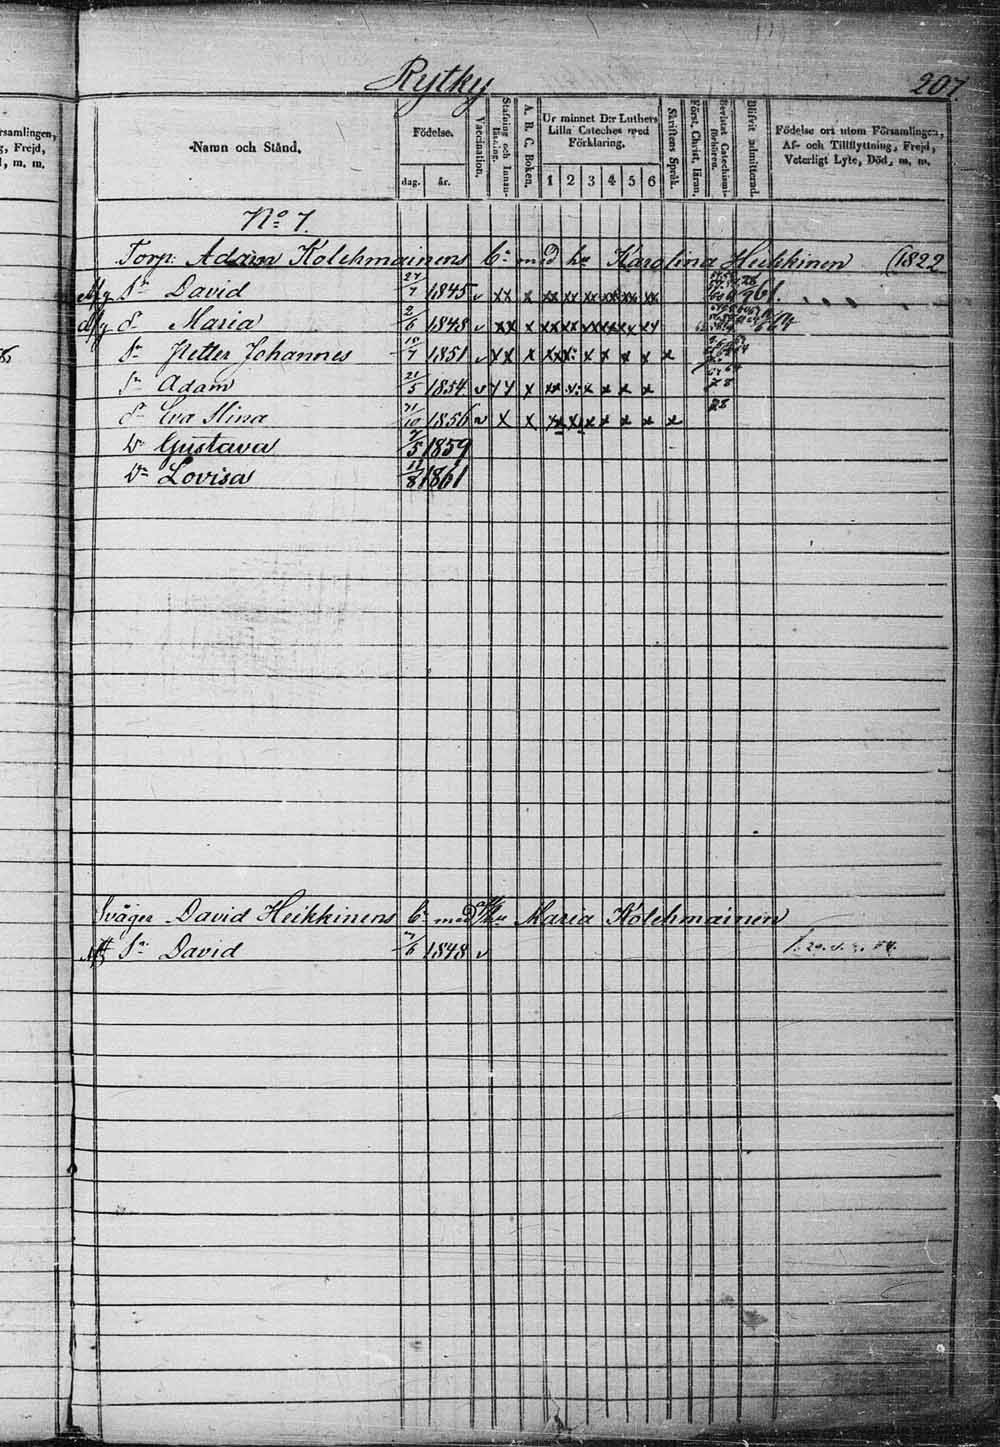 Rytky
207.
rsamlingen,
g, Frejd,
, m. m.
Namn och Stånd.
Födelse.
dag. år.
Vaccination.
Stafning och Innan-
läsning.
A. B. C. Boken.
Ur minnet D:r Luthers
Lilla Cateches med
Förklaring.
1 2 3 4 5 6
Skriftens Språk.
Först. Christ. läran.
Bevistat Catechismi-
förhören.
Blifvit admitterad.
Födelse ort utom Församlingen,
Af- och Tillflyttning, Frejd,
Veterligt Lyte, Död, m. m.
No 7.
Torp: Adam Kolehmainens bn med hu Karolina Heikkinen (1822
Sn David 27/7 1845 v xx x xx xx xx xx xx xx
dr Maria 2/6 1848 v xx x
Sn Petter Johannes 18/7 1851 v x x x
Sn Adam 21/5 1854 v
dr Eva Stina 31/10 1856 v x x
Dr Gustava 7/5 1859
Dr Lovisa 12/8 1861
Svåger David Heikkinens bn med hu Maria Kolehmainen
Sn David 7/6 1848 v